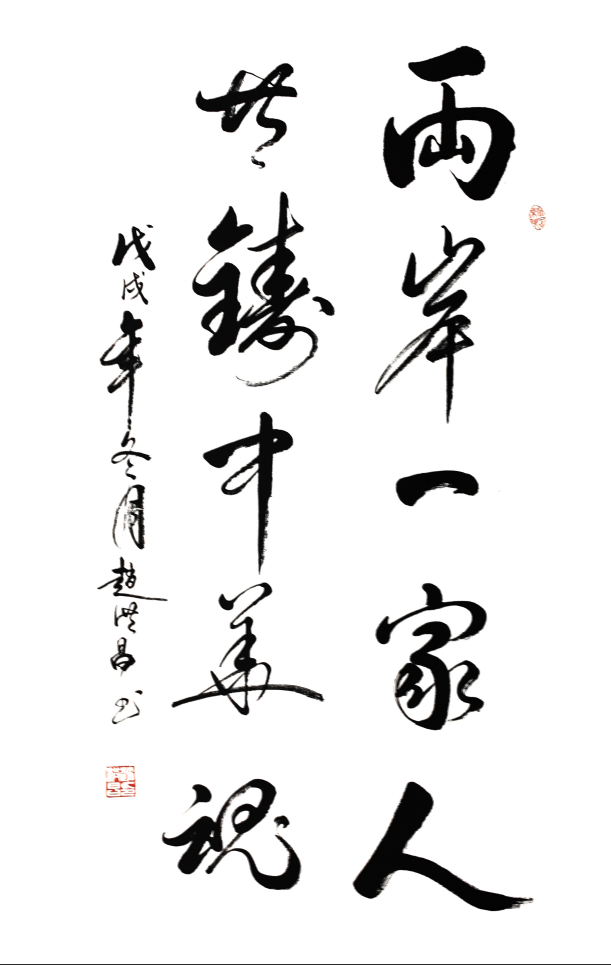 兩岸一家人
共鑄中華魂
戊戌年冬月趙洪昌书